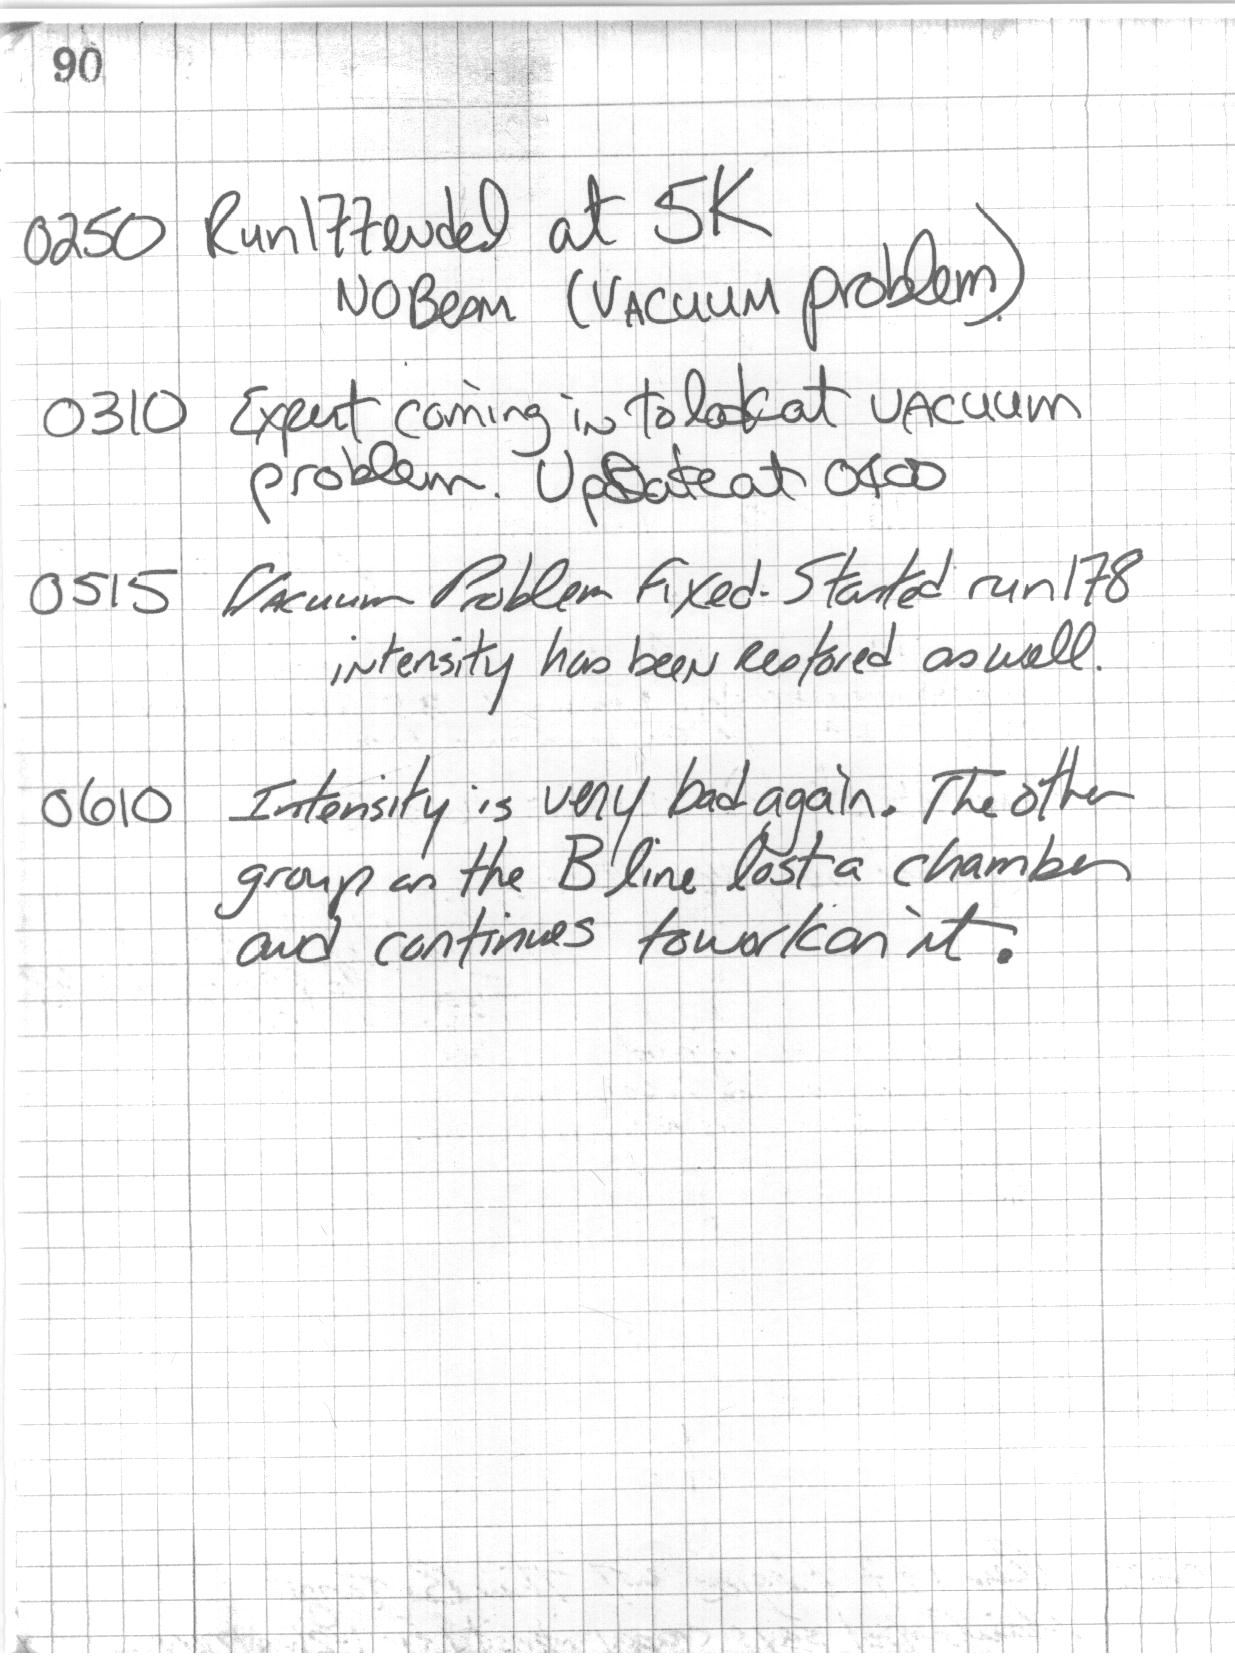 90
0250 Run 177 ended at 5K
NO Beam (VACUUM problem)
0310 Expert coming in to look at VACUUM
problem. Update at 0400
0515 Vacuum Problem Fixed. Started run 178
intensity has been restored as well.
0610 Intensity is very bad again. The other
group on the B line lost a chamber
and continues to work on it.